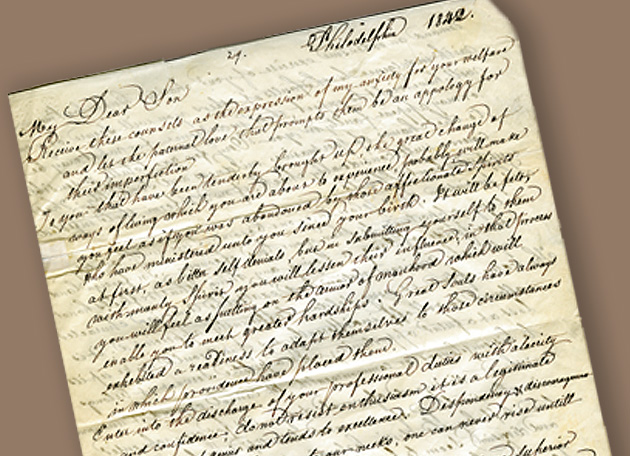 24.
Philadelphia 1842.
My Dear Son
Receive these counsels as the expression of my anxiety for your welfare
and let the paternal love, that prompts them be an appology for
their imperfection
To you that have been tenderly brought up, the great change of
ways of living which you are about to experience probably will make
you feel as if you was abandoned by those affectionate Spirits
who have ministered unto you sinced your birth. It will be felt,
at first, as bitter self denials, but in submitting yourself to them
with manly Spirit you will lessen their influence; in that process
you will feel as putting on the armor of manhood which will
enable you to meet greater hardships. Great Souls have always
exhebited a readiness to adapt themselves to those circumstances
in which providence had placed them.
Enter into the discharge of your professional duties with alacrity
and confidence; do not resist enthusiasm it is a legitimate
genius and tends to excellence. Despondency & discouragement
our necks, one can never rise untill
superior